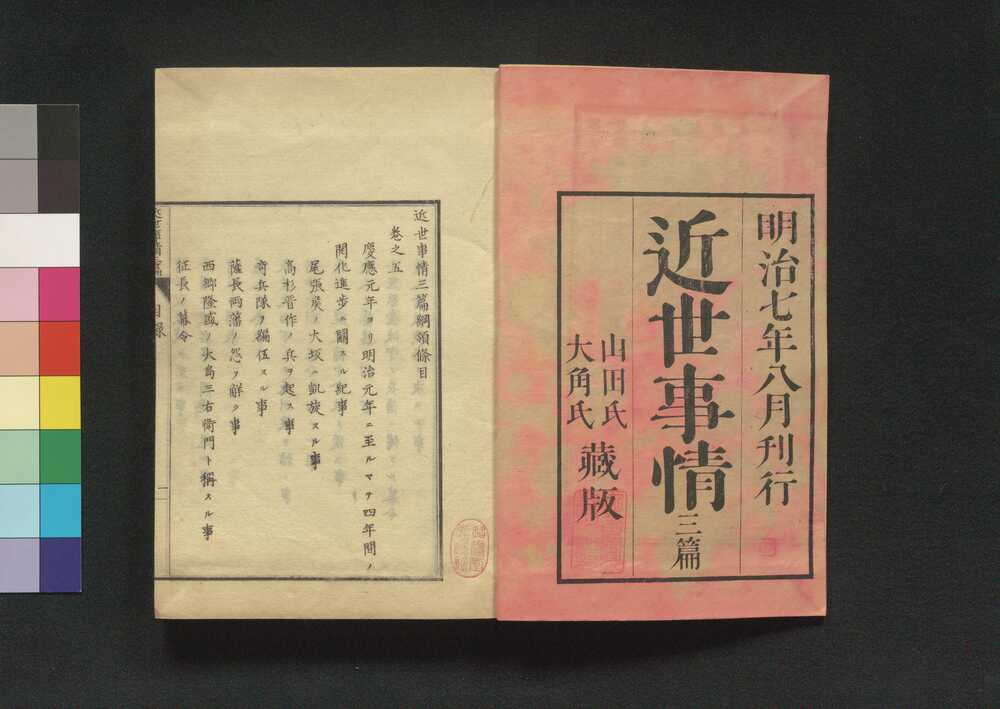 明治七年八月刊行
近世事情 三篇
山田氏
大角氏
藏版
近世事情三篇綱領條目
卷之五
慶應元年ヨリ明治元年ニ至ルマテ四年間ノ
開化進歩ニ關スル紀事
尾張矦ノ大坂ニ凱旋スル事
高杉晋作ノ兵ヲ起ス事
奇兵隊ヲ編伍スル事
薩長両藩ノ怨ヲ解ク事
西郷隆盛ノ大島三右衛門ト稱スル事
征長ノ幕令
目錄
一